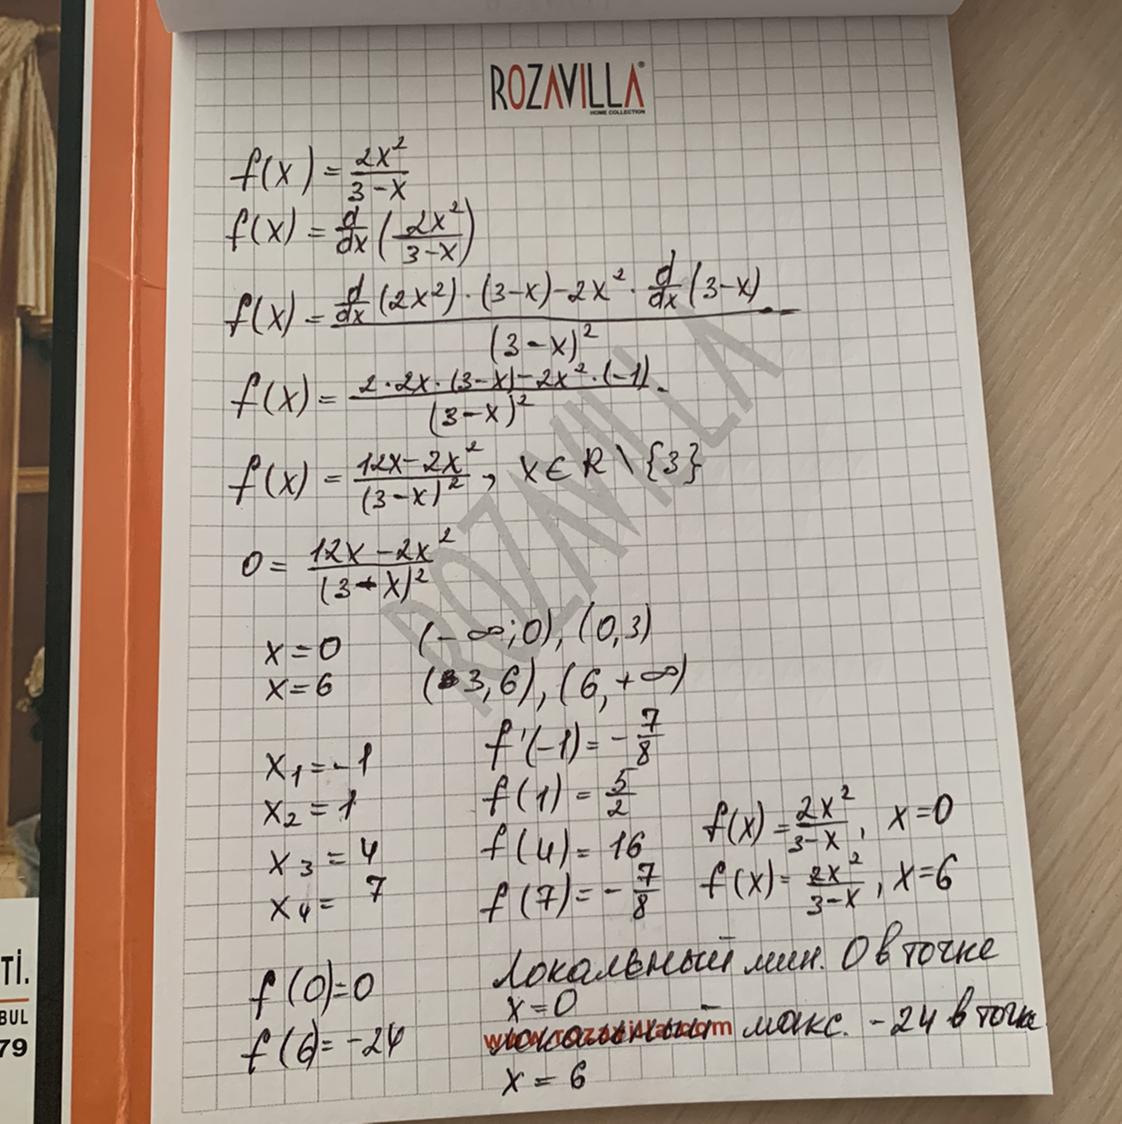 ROZAVILLA®
HOME COLLECTION
f(x) = 2x²/(3-x)
f(x) = d/dx (2x²/(3-x))
f(x) = (d/dx (2x²) · (3-x) - 2x² · d/dx (3-x))/(3-x)²
f(x) = (2·2x·(3-x) - 2x²·(-1))/(3-x)²
f(x) = (12x-2x²)/(3-x)², x ∈ R \ {3}
0 = (12x-2x²)/(3-x)²
x=0 (-∞;0), (0,3)
x=6 (3,6), (6,+∞)
x₁=-1 f'(-1) = -7/8
x₂=1 f(1) = 5/2
x₃=4 f(4) = 16
x₄=7 f(7) = -7/8
f(x) = 2x²/(3-x), x=0
f(x) = 2x²/(3-x), x=6
f(0)=0
f(6)=-24
Локальный мин. 0 в точке
x=0
локальный макс. -24 в точке
x=6
www.rozavilla.com
ROZAVILLA
Tİ.
BUL
79